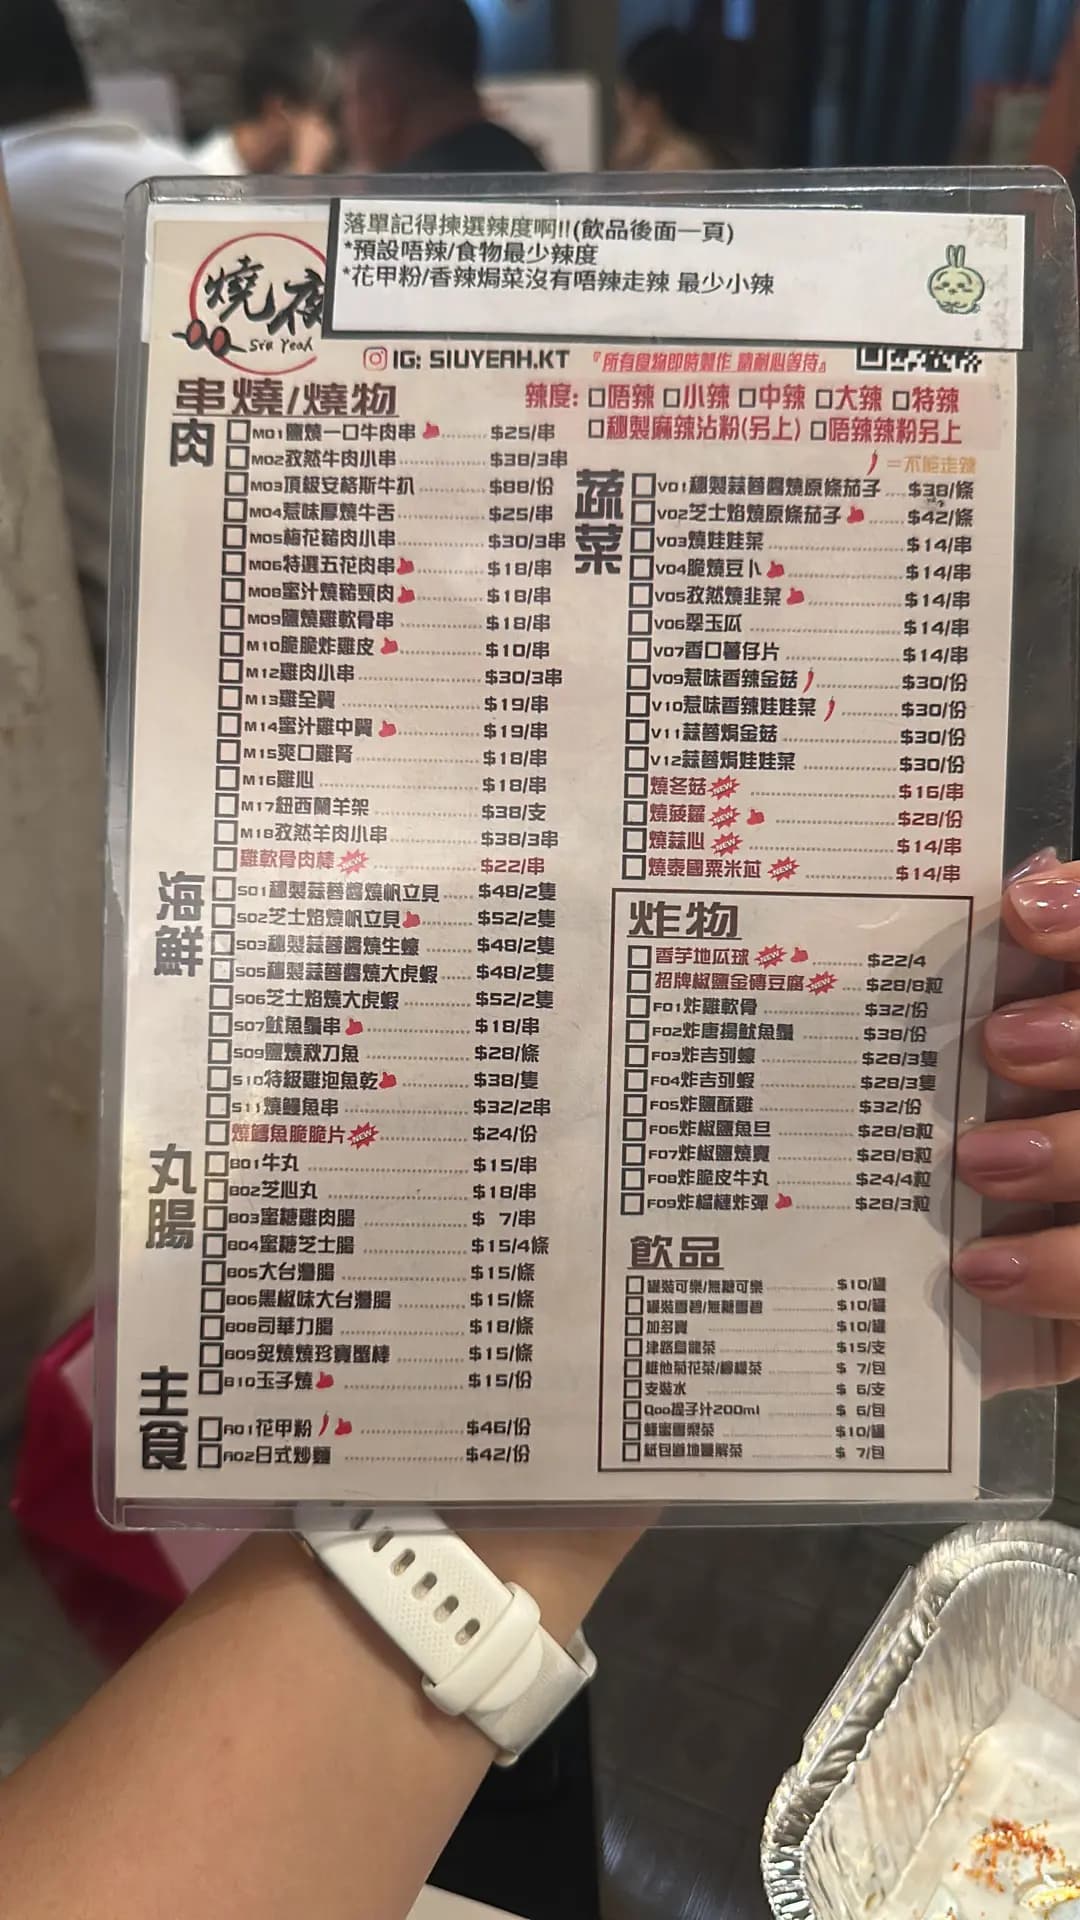 落單記得揀選辣度啊!!(飲品後面一頁)
*預設唔辣/食物最少辣度
*花甲粉/香辣焗菜沒有唔辣走辣 最少小辣
燒夜
Siu Yeah
IG: SIUYEAH.KT
『所有食物即時製作 請耐心等待』
串燒/燒物
辣度: 唔辣 小辣 中辣 大辣 特辣
秘製麻辣沾粉(另上) 唔辣辣粉另上
=不能走辣
肉
M01鹽燒一口牛肉串 $25/串
M02孜然牛肉小串 $38/3串
M03頂級安格斯牛扒 $88/份
M04惹味厚燒牛舌 $25/串
M05梅花豬肉小串 $30/3串
M06特選五花肉串 $18/串
M08蜜汁燒豬頸肉 $18/串
M09鹽燒雞軟骨串 $18/串
M10脆脆炸雞皮 $10/串
M12雞肉小串 $30/3串
M13雞全翼 $19/串
M14蜜汁雞中翼 $19/串
M15爽口雞腎 $18/串
M16雞心 $18/串
M17紐西蘭羊架 $38/支
M18孜然羊肉小串 $38/3串
雞軟骨肉棒 NEW $22/串
海鮮
S01秘製蒜蓉醬燒帆立貝 $48/2隻
S02芝士焰燒帆立貝 $52/2隻
S03秘製蒜蓉醬燒生蠔 $48/2隻
S05秘製蒜蓉醬燒大虎蝦 $48/2隻
S06芝士焰燒大虎蝦 $52/2隻
S07魷魚鬚串 $18/串
S09鹽燒秋刀魚 $28/條
S10特級雞泡魚乾 $38/隻
S11燒鰻魚串 $32/2串
燒鱈魚脆脆片 NEW $24/份
丸腸
B01牛丸 $15/串
B02芝心丸 $18/串
B03蜜糖雞肉腸 $ 7/串
B04蜜糖芝士腸 $15/4條
B05大台灣腸 $15/條
B06黑椒味大台灣腸 $15/條
B08司華力腸 $18/條
B09炙燒燒珍寶蟹棒 $15/條
B10玉子燒 $15/份
主食
A01花甲粉 $46/份
A02日式炒麵 $42/份
蔬菜
V01秘製蒜蓉醬燒原條茄子 $38/條
V02芝士焰燒原條茄子 $42/條
V03燒娃娃菜 $14/串
V04脆燒豆卜 $14/串
V05孜然燒韭菜 $14/串
V06翠玉瓜 $14/串
V07香口薯仔片 $14/串
V09惹味香辣金菇 $30/份
V10惹味香辣娃娃菜 $30/份
V11蒜蓉焗金菇 $30/份
V12蒜蓉焗娃娃菜 $30/份
燒冬菇 NEW $16/串
燒菠蘿 NEW $28/份
燒蒜心 NEW $14/串
燒泰國粟米芯 NEW $14/串
炸物
香芋地瓜球 NEW $22/4
招牌椒鹽金磚豆腐 NEW $28/8粒
F01炸雞軟骨 $32/份
F02炸唐揚魷魚鬚 $38/份
F03炸吉列蠔 $28/3隻
F04炸吉列蝦 $28/3隻
F05炸鹽酥雞 $32/份
F06炸椒鹽魚旦 $28/8粒
F07炸椒鹽燒賣 $28/8粒
F08炸脆皮牛丸 $24/4粒
F09炸榴槤炸彈 $28/3粒
飲品
罐裝可樂/無糖可樂 $10/罐
罐裝雪碧/無糖雪碧 $10/罐
加多寶 $10/罐
津路烏龍茶 $15/支
維他菊花茶/檸檬茶 $ 7/包
支裝水 $ 6/支
Qoo提子汁200ml $ 6/包
蜂蜜雪梨茶 $10/罐
紙包道地蠔解茶 $ 7/包